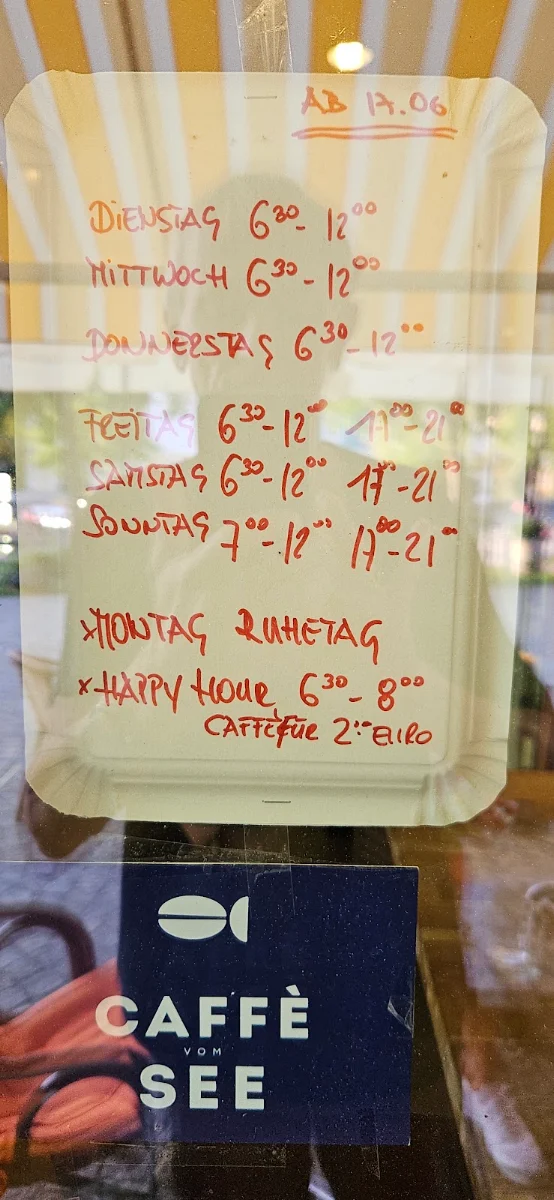 AB 17.06
DIENSTAG 6³⁰- 12⁰⁰
MITTWOCH 6³⁰-12⁰⁰
DONNERSTAG 6³⁰-12⁰⁰
FREITAG 6³⁰-12⁰⁰ 17⁰⁰-21⁰⁰
SAMSTAG 6³⁰-12⁰⁰ 17⁰⁰-21⁰⁰
SONNTAG 7⁰⁰-12⁰⁰ 17⁰⁰-21⁰⁰
xMONTAG RUHETAG
xHAPPY HOUR 6³⁰-8⁰⁰
CAFFÈ FÜR 2⁰⁰ EURO
CAFFÈ
VOM
SEE